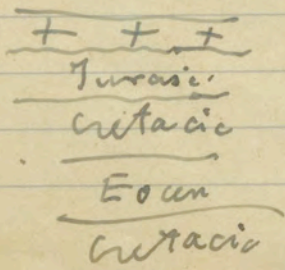 + + +
Jurasic
cretacic
Eocen
cretacic